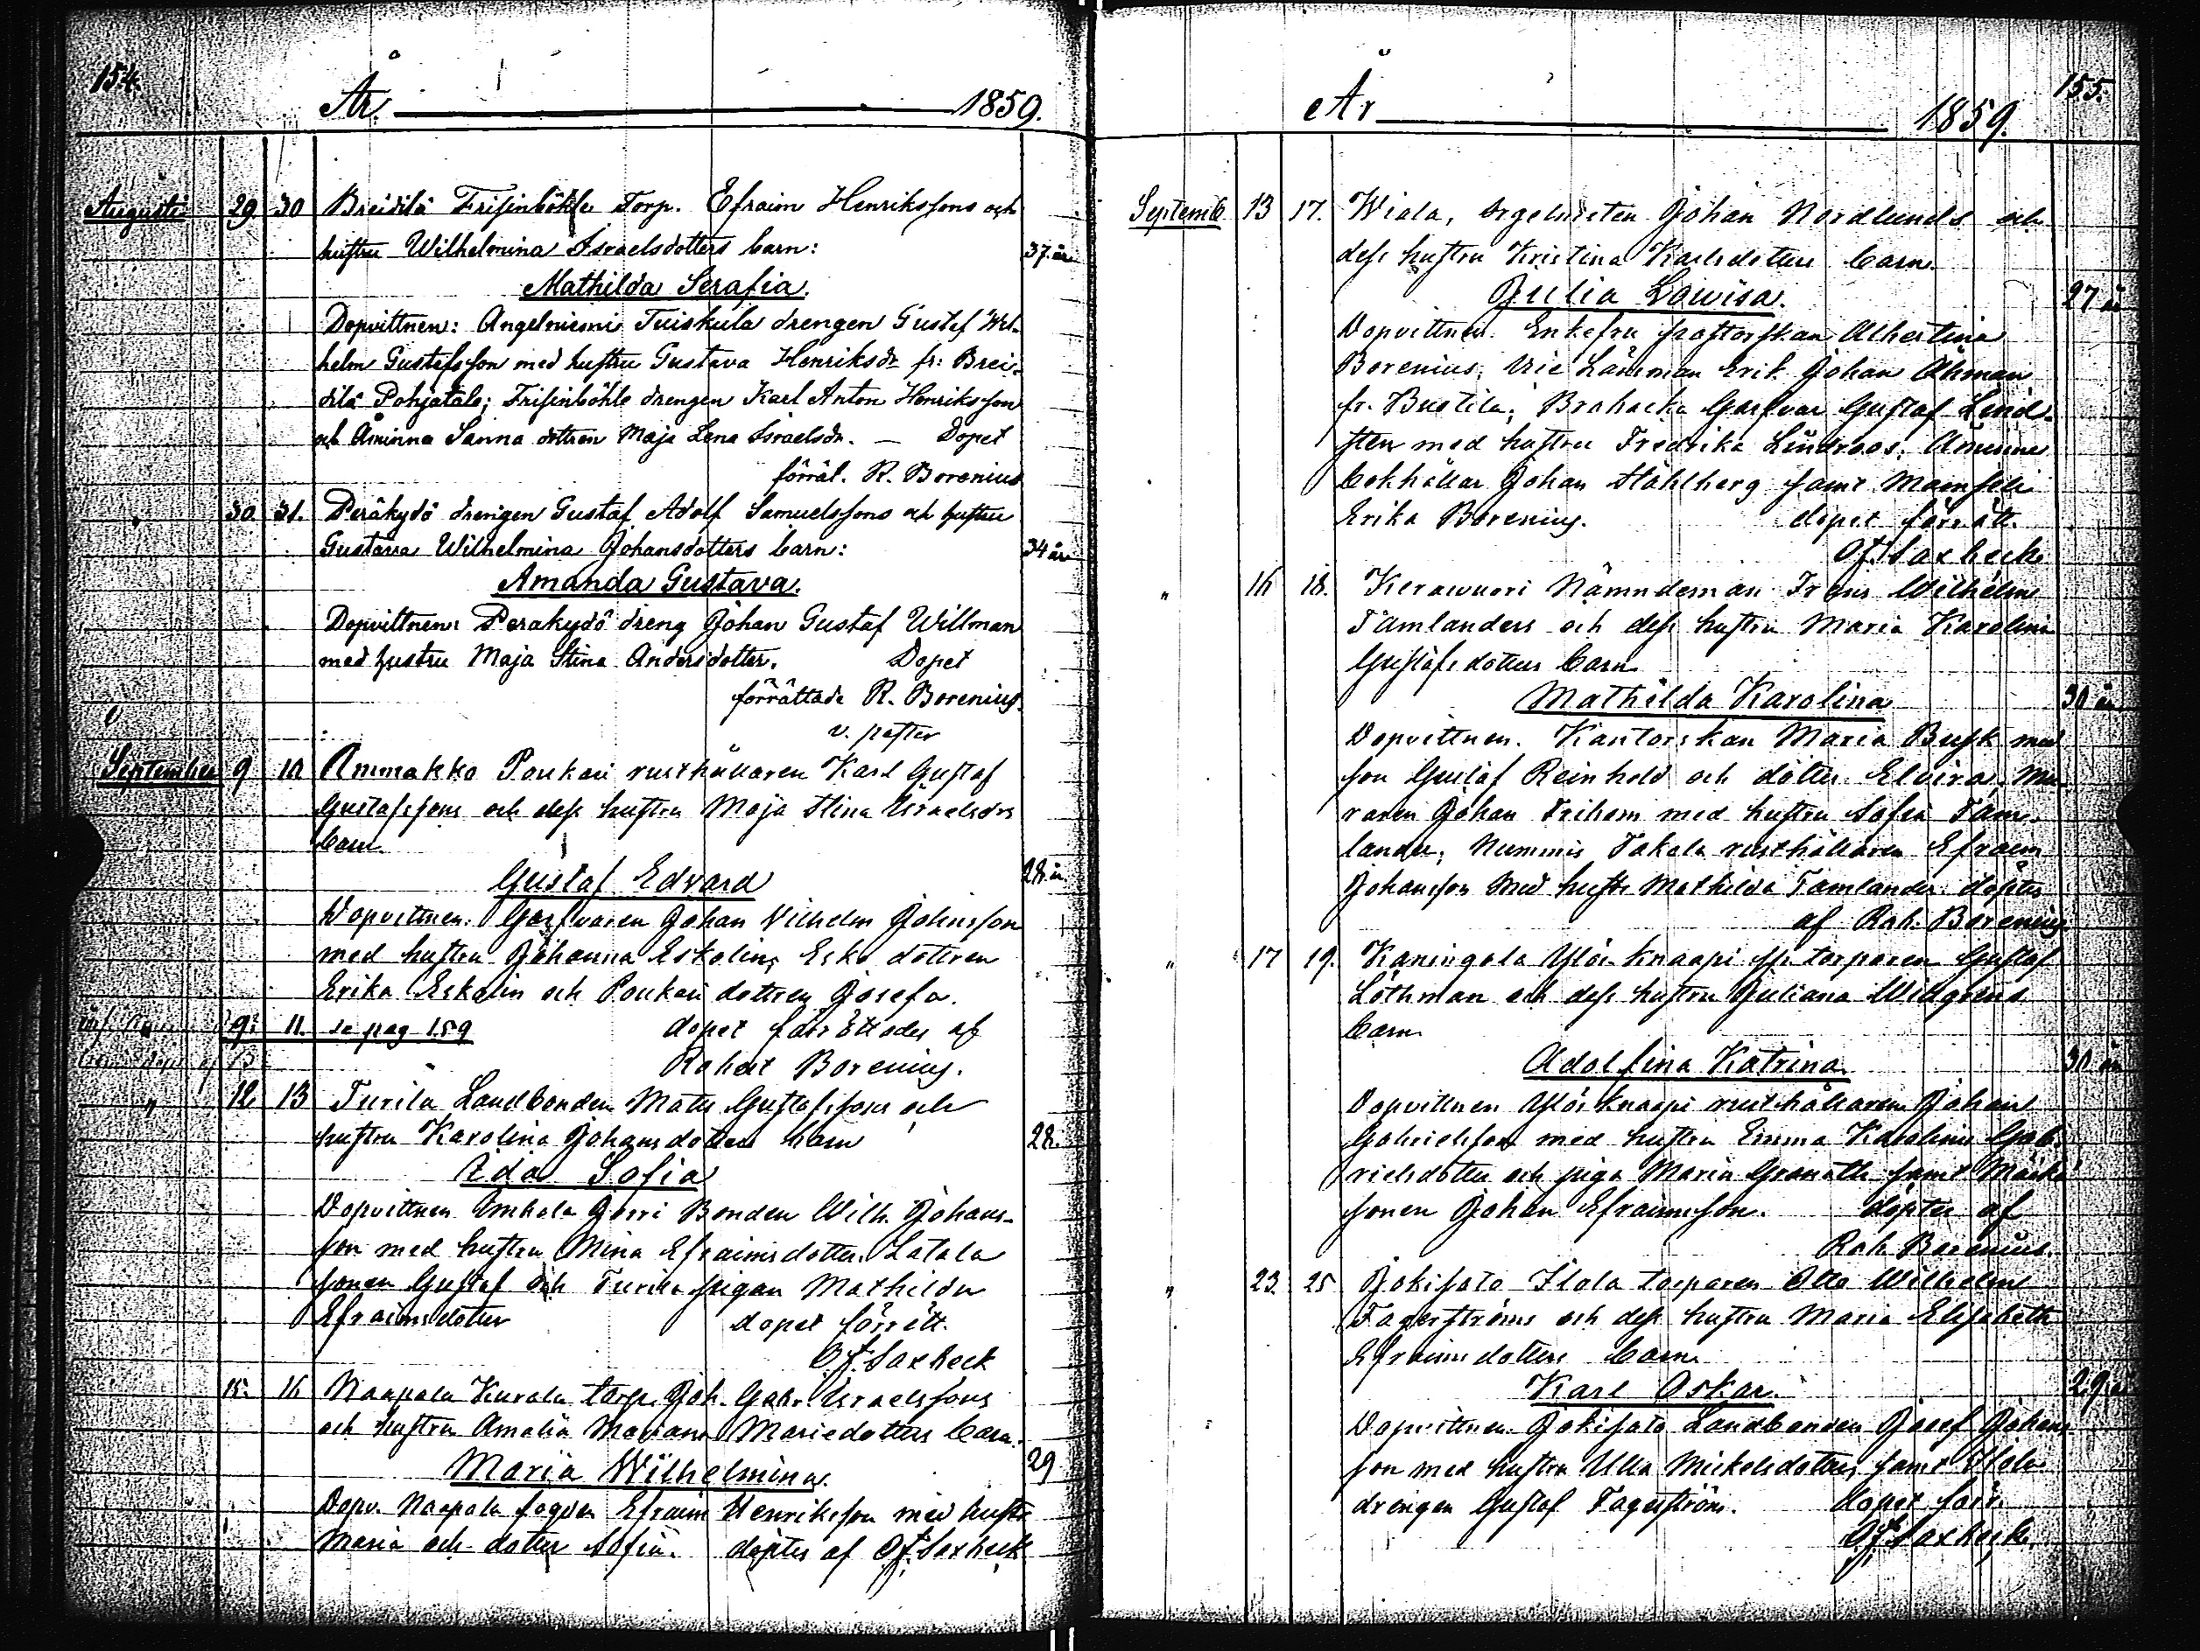 154.
År. 1859.
Augusti 29 30 Breidilä Frisinböhle Torp. Efraim Henrikssons och
hustru Wilhelmina Israelsdotters barn: 37 år
Mathilda Serafia.
Dopvittnen: Angelniemi Tuiskula drengen Gustaf Wil-
helm Gustafsson med hustru Gustava Henriksdr fr: Brei-
dilä Pohjatalo; Frisinböhle drengen Karl Anton Henriksson
och Åminne Sanna dottren Maja Lena Israelsdr. — Dopet
förrät. R. Borenius
" 30 31. Peräkydö drengen Gustaf Adolf Samuelssons och hustru
Gustava Wilhelmina Johansdotters barn: 34 år
Amanda Gustava.
Dopvittnen: Peräkydö dreng Johan Gustaf Willman
med hustru Maja Stina Andersdotter. Dopet
förrättade R. Borenius.
v. pastor
September 9 10 Ammakko Poukari rusthållaren Karl Gustaf
Gustafssons och dess hustru Maja Stina Israelsdrs
barn.
Gustaf Edvard 28 år
Dopvittnen. Garfwaren Johan Vilhelm Johansson
med hustru Johanna Eskolin, Esko dottren
Erika Eskolin och Poukari dottren Josefa.
9. 11. se pag 159 dopet förrättades af
Robert Borenius.
" 12 13 Turila Landbonden Mats Gustafssons och
hustru Karolina Johansdotters barn 28.
Ida Sofia
Dopvittnen Gorri Bonden Wilh. Johans-
son med hustru Mina Efraimsdotter. Latala
sonen Gustaf och Turila pigan Mathilda
Efraimsdotter dopet förrätt.
O.f. Saxbeck
15. 16 Naapala Kurala torp. Joh. Gabr. Israelssons
och hustru Amalia Mariana Mariedotters barn.
Maria Wilhelmina. 29
Dopv. Naapala fogden Efraim Henriksson med hustru
Maria och dotter Sofia. döptes af O.f. Saxbeck
155.
År 1859.
Septemb 13 17. Wiala, orgelnisten Johan Nordlunds och
dess hustru Kristina Karlsdotters barn.
Julia Lowisa. 27 år
Dopvittnen. Enkefru Albertina
Borenius, Vice Länsman Erik Johan Öhman
fr. Bustila; Garfvar Gustaf Lind-
sten med hustru Fredrika Lindroos, Åminne
bokhållar Johan Ståhlberg samt Mamsell
Erika Borenius. dopet förrätt.
O.f. Saxbeck
" 16 18. Kerawuori Nämndeman Frans Wilhelm
Tamlanders och dess hustru Maria Karolina
Gustafsdotters barn
Mathilda Karolina 30 år
Dopvittnen. Kantorskan Maria Busk med
son Gustaf Reinhold och dotter Elvira, Mu-
raren Johan Friborn med hustru Sofia Tam-
lander, Nummis Takala rusthållaren Efraim
Johansson med hustr Mathilda Tamlander. döptes
af Rob. Borenius
" 17 19. Kaningola Ylös-Knaapi torparen Gustaf
Löthman och dess hustru Juliana Widgrens
barn
Adolfina Katrina. 30 år
Dopvittnen Ylös Knaapi rusthållaren Johan
Gabrielsson med hustru Emma Karolina Gab-
rielsdotter och piga Maria Granath samt
sonen Johan Efraimsson. döptes af
Rob Borenius
" 23. 25 Jokisato Ilola torparen Otto Wilhelm
Fagerströms och dess hustru Maria Elisabeth
Efraimsdotters barn.
Karl Oskar. 29 år
Dopvittnen Jokisato Landbonden Josef Johans-
son med hustru Ulla Mickelsdotter, samt Ilola
drengen Gustaf Fagerström. dopet förr.
O.f. Saxbeck.